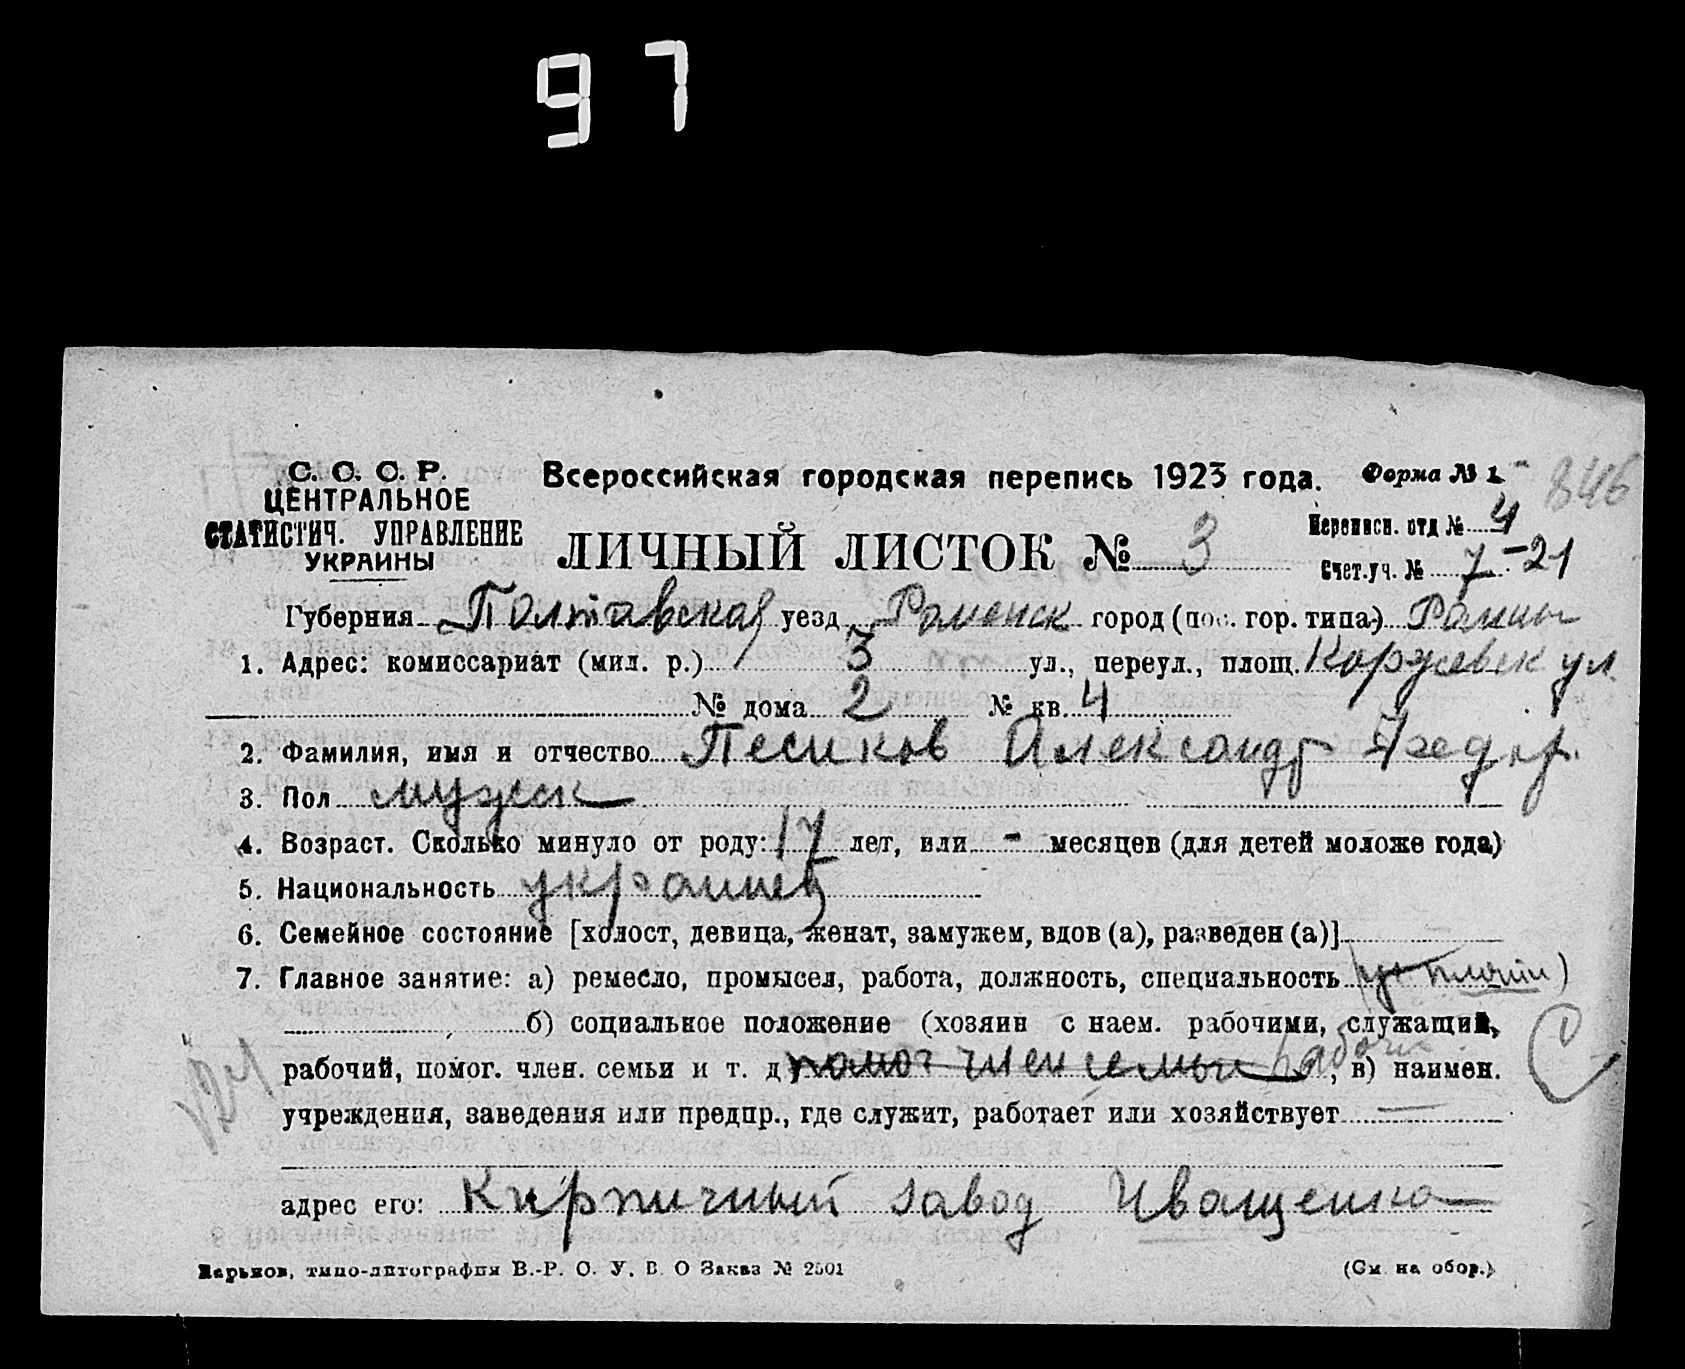 97
С. С. С. Р. Всероссийская городская перепись 1923 года. Форма № 1. 846
ЦЕНТРАЛЬНОЕ
СТАТИСТИЧ. УПРАВЛЕНИЕ
УКРАИНЫ
ЛИЧНЫЙ ЛИСТОК № 3
Переписн. отд № 4
Счет.уч. № 7-21
Губерния Полтавская уезд Роменск город (пос. гор. типа) Ромны
1. Адрес: комиссариат (мил. р.) 3 ул., переул., площ. Коржевск ул.
№ дома 2 № кв. 4
2. Фамилия, имя и отчество Песиков Александр Федор.
3. Пол мужск
4. Возраст. Сколько минуло от роду: 17 лет, или - месяцев (для детей моложе года)
5. Национальность украинец
6. Семейное состояние [холост, девица, женат, замужем, вдов (а), разведен (а)]
7. Главное занятие: а) ремесло, промысел, работа, должность, специальность
б) социальное положение (хозяин с наем. рабочими, служащий,
рабочий, помог. член. семьи и т. д помог член семьи рабоч , в) наимен.
учреждения, заведения или предпр., где служит, работает или хозяйствует —
адрес его: Кирпичный завод Иващенко
Харьков, типо-литография В.-Р. О. У. В. О Заказ № 2501 (См. на обор.)